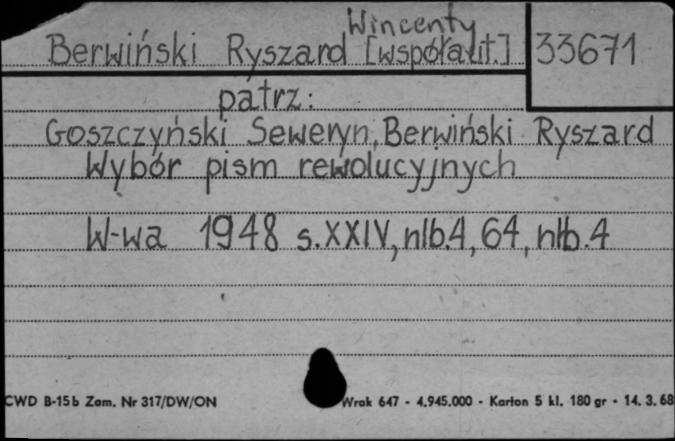 Wincenty
Berwiński Ryszard [współaut.] 33671
patrz:
Goszczyński Seweryn, Berwiński Ryszard
Wybór pism rewolucyjnych
W-wa 1948 s.XXIV, nlb.4, 64, nlb.4
CWD B-15b Zam. Nr 317/DW/ON Wrak 647 - 4.945.000 - Karton 5 kl. 180 gr - 14. 3. 68